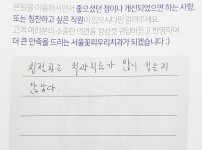 본원을 이용하시면서 좋으셨던 점이나 개선되었으면 하는 사항,
또는 칭찬하고 싶은 직원이 있으시다면 알려주세요.
고객 여러분의 소중한 의견을 항상 귀담아듣고 반영하여
더 큰 만족을 드리는 서울꽃피우리치과가 되겠습니다 :)
친절하고 치과치료가 많이 힘든지
않았다.